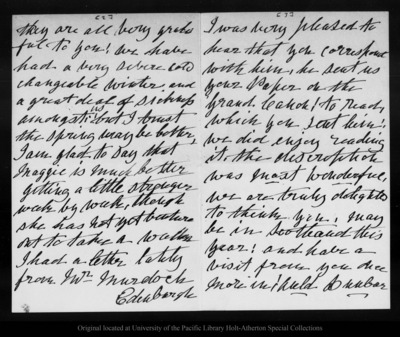 they are all very grate
ful to you! we have
had a very severe cold
changeable winter, and
a great deal of sickness
amongst us but I trust
the spring may be better,
I am glad to say that
Maggie is much better
getting a little stronger
week by week, though
she has not yet
out to take a walk
I had a letter lately
from Mrs. Murdoch
Edinburgh
I was very pleased to
hear that you correspond
with him, he sent us
your Paper on the
grand Canon! to read,
which you sent him!
we did enjoy reading
it, the description
was most wonderful,
we are truly delighted
to think you, may
be in Scotland this
year! and have a
visit from you once
more in Auld Dunbar
Original located at University of the Pacific Library Holt-Atherton Special Collections